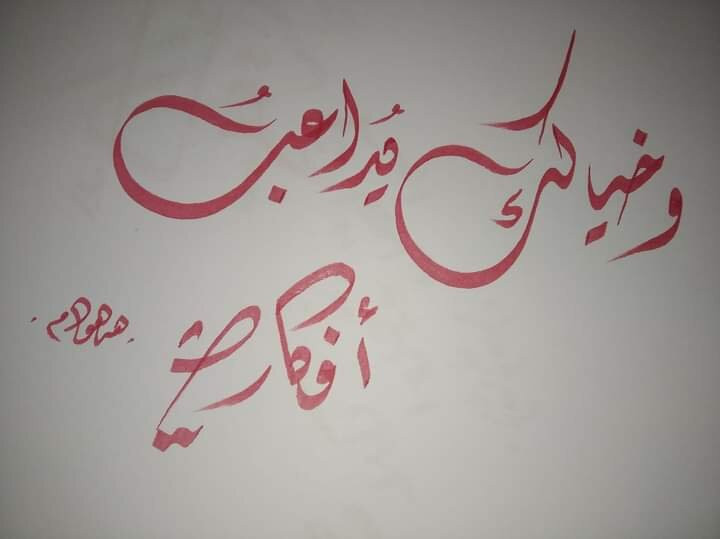 وخيالك يُداعبُ
أفكاري